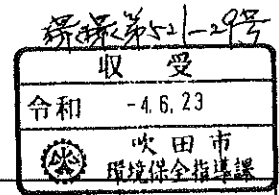 第521-29号
収受
令和 -4.6.23
吹田市
環境保全指導課